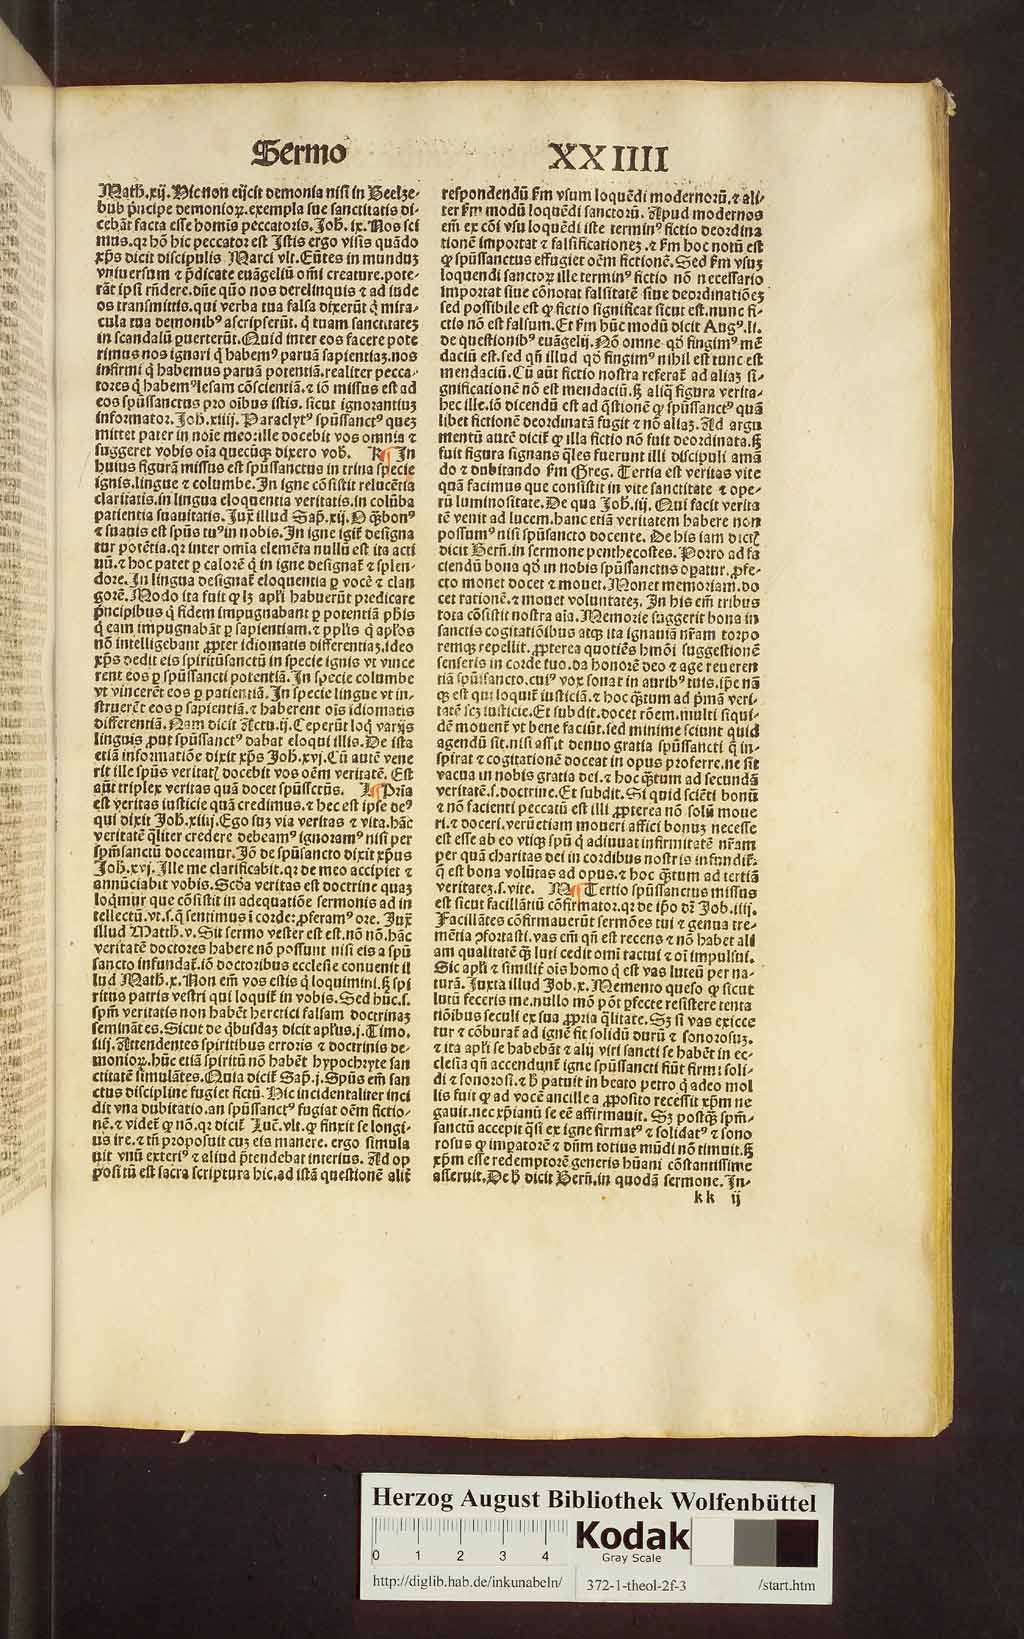 Sermo
XXIIII
Math̃.xij. Hic non eijcit demonia nisi in Beelze-
bub p̃ncipe demonioꝝ.exempla sue sanctitatis di-
cebãt facta esse homĩs peccatoris. Joh̃. ix. Nos sci
mus.qꝛ hõ hic peccator est Istis ergo visis quãdo
xp̃s dicit discipulis Marci vlt. Eũtes in munduꝫ
vniuersum ⁊ p̃dicate euãgeliũ om̃i creature.pote-
rãt ipsi rñdere.dñe quo nos derelinquis ⁊ ad iude
os transmittis.qui verba tua falsa dixerũt q̃ mira-
cula tua demonibꝰ ascripserũt. q̃ tuam sanctitateꝫ
in scandalũ ꝑuerterũt. Quid inter eos facere pote
rimus nos ignari q̃ habemꝰ paruã sapientiaꝫ.nos
infirmi q̃ habemus paruã potentiã.realiter pecca-
tores q̃ habemꝰ lesam cõscientiã.⁊ iõ missus est ad
eos spũssanctus pro oĩbus istis. sicut ignorantiuꝫ
informator. Joh̃.xiiij. Paraclytꝰ spũssanctꝰ queꝫ
mittet pater in noĩe meo:ille docebit vos omnia ⁊
suggeret vobis oĩa quecũqꝫ dixero vob̃. K ¶ In
huius figurã missus est spũssanctus in trina specie
ignis.lingue ⁊ columbe. In igne cõsistit relucẽtia
claritatis.in lingua eloquentia veritatis.in colũba
patientia suauitatis. Juxͭ illud Sap̃.xij. O q̃ꝫ bonꝰ
⁊ suauis est spũs tuꝰ in nobis. In igne igit̃ designa
tur potẽtia.qꝛ inter om̃ia elemẽta nullũ est ita acti
uũ.⁊ hoc patet ꝑ calorẽ q̃ in igne designat̃ ⁊ splen-
dore. In lingua designat̃ eloquentia ꝑ vocẽ ⁊ clan
gorẽ. Modo ita fuit ꝙ lꝫ apl̃i habuerũt predicare
p̃ncipibus q̃ fidem impugnabant ꝑ potentiã ph̃is
q̃ eam impugnabãt ꝑ sapientiam.⁊ ppl̃is q̃ apl̃os
nõ intelligebant ꝓpter idiomatis differentiaꝫ.ideo
xp̃s dedit eis spiritũsanctũ in specie ignis vt vince
rent eos ꝑ spũssancti potentiã. In specie columbe
vt vincerẽt eos ꝑ patientiã. In specie lingue vt in-
struerẽt eos ꝑ sapientiã.⁊ haberent oĩs idiomatis
differentiã. Nam dicit Actu.ij. Ceperũt loq̃ varijs
linguis ꝓut spũssanctꝰ dabat eloqui illis. De ista
etiã informatiõe dixit xp̃s Joh̃.xvj. Cũ autẽ vene
rit ille spũs veritatꝭ docebit vos oẽm veritatẽ. Est
aũt triplex veritas quã docet spũssctũs. L ¶ Pria
est veritas iusticie quã credimus.⁊ hec est ipse deꝰ
qui dixit Joh̃.xiiij. Ego suꝫ via veritas ⁊ vita.hãc
veritatẽ q̃liter credere debeamꝰ ignoramꝰ nisi per
spm̃sanctũ doceamur. Jõ de spũsancto dixit xp̃us
Joh̃.xvj. Ille me clarificabit.qꝛ de meo accipiet ⁊
annũciabit vobis. Scd̃a veritas est doctrine quaꝫ
loq̃mur que cõsistit in adequatiõe sermonis ad in
tellectũ.vt.s.q̃ sentimus ĩ corde:ꝓferamꝰ ore. Juxͭ
illud Matth̃.v. Sit sermo vester est est.nõ nõ.hãc
veritatẽ doctores habere nõ possunt nisi eis a spũ
sancto infundat̃.iõ doctoribus ecclesie conuenit il
lud Math̃.x. Non em̃ vos estis q̃ loquimini.sꝫ spi
ritus patris vestri qui loquit̃ in vobis. Sed hũc.s.
spm̃ veritatis non habẽt heretici falsam doctrinaꝫ
seminãtes. Sicut de q̃busdaꝫ dicit apl̃us.j. Timo.
iiij. Attendentes spiritibus erroris ⁊ doctrinis de-
monioꝝ. hũc etiã spiritũ nõ habẽt hypochryte san
ctitatẽ simulãtes. Quia dicit̃ Sap̃.j. Spũs em̃ san
ctus discipline fugiet fictũ. Hic incidentaliter inci
dit vna dubitatio.an spũssanctꝰ fugiat oẽm fictio-
nẽ.⁊ videt̃ ꝙ nõ.qꝛ dicit̃ Luc̃.vlt.ꝙ finxit se longi-
us ire.⁊ tñ proposuit cuꝫ eis manere. ergo simula
uit vnũ exteriꝰ ⁊ aliud p̃tendebat interius. Ad op
positũ est sacra scriptura hic.ad istã questionẽ alit̃
respondendũ ẜm vsum loquẽdi modernorũ.⁊ ali-
ter ẜm modũ loquẽdi sanctorũ. Apud modernos
em̃ ex cõi vsu loquẽdi iste terminꝰ fictio deordina
tionẽ importat ⁊ falsificationeꝫ.⁊ ẜm hoc notũ est
ꝙ spũssanctus effugiet oẽm fictionẽ. Sed ẜm vsuꝫ
loquendi sanctoꝝ ille terminꝰ fictio nõ necessario
importat siue cõnotat falsitatẽ siue deordinatiõeꝫ
sed possibile est ꝙ fictio significat sicut est.nunc fi-
ctio nõ est falsum. Et ẜm hũc modũ dicit Augꝰ.li.
de questionibꝰ euãgelij. Nõ omne qd̃ fingimꝰ mẽ
daciũ est.sed qñ illud qd̃ fingimꝰ nihil est tunc est
mendaciũ. Cũ aũt fictio nostra referat̃ ad aliaꝫ si-
gnificationẽ nõ est mendaciũ.sꝫ aliq̃ figura verita-
hec ille.iõ dicendũ est ad q̃stionẽ ꝙ spũssanctꝰ quã
libet fictionẽ deordinatã fugit ⁊ nõ aliaꝫ. Ad argu
mentũ autẽ dicit̃ ꝙ illa fictio nõ fuit deordinata.sꝫ
fuit figura signans q̃les fuerunt illi discipuli amã
do ⁊ dubitando ẜm Greg. Tertia est veritas vite
quã facimus que consistit in vite sanctitate ⁊ ope-
rũ luminositate. De qua Joh̃.iij. Qui facit verita
tẽ venit ad lucem.hanc etiã veritatem habere non
possumꝰ nisi spũsancto docente. De his iam dictꝭ
dicit Bern̄.in sermone penthecostes. Porro ad fa
ciendũ bona qd̃ in nobis spũssanctus oꝑatur.ꝓfe-
cto monet docet ⁊ mouet. Monet memoriam.do
cet rationẽ.⁊ mouet voluntateꝫ. In his em̃ tribus
tota cõsistit nostra aĩa. Memorie suggerit bona in
sanctis cogitatiõibus atqꝫ ita ignauiã nr̃am torpo
remqꝫ repellit. ꝓpterea quotiẽs hmõi suggestionẽ
senseris in corde tuo.da honorẽ deo ⁊ age reueren
tiã spũisancto.cuiꝰ vox sonat in auribꝰ tuis.ip̃e nã
qꝫ est qui loquit̃ iusticiã.⁊ hoc q̃ꝫtum ad p̃mã veri-
tatẽ scꝫ iusticie. Et subdit.docet rõem.multi siqui-
dẽ mouent̃ vt bene faciãt.sed minime sciunt quid
agendũ sit.nisi assit denuo gratia spũssancti q̃ in-
spirat ⁊ cogitationẽ doceat in opus proferre.ne sit
vacua in nobis gratia dei.⁊ hoc q̃ꝫtum ad secundã
veritatẽ.s.doctrine. Et subdit. Si quid sciẽti bonũ
⁊ nõ facienti peccatũ est illi ꝓpterea nõ solũ moue
ri.⁊ doceri.verũetiam moueri affici bonuꝫ necesse
est esse ab eo vtiqꝫ spũ q̃ adiuuat infirmitatẽ nr̃am
per quã charitas dei in cordibus nostris infundit̃.
q̃ est bona volũtas ad opus.⁊ hoc q̃ꝫtum ad tertiã
veritateꝫ.s.vite. M ¶ Tertio spũssanctus missus
est sicut facillãtiũ cõfirmator.qꝛ de ip̃o dꝛ̃ Job.iiij.
Facillãtes cõfirmauerũt sermões tui ⁊ genua tre-
mẽtia ꝯfortasti.vas em̃ qñ est recens ⁊ nõ habet ali
am qualitatẽ qꝫ luti cedit om̃i tactui ⁊ oĩ impulsui.
Sic apl̃i ⁊ similit̃ oĩs homo q̃ est vas luteũ per na-
turã. Juxta illud Job.x. Memento queso ꝙ sicut
lutũ feceris me.nullo mõ põt ꝑfecte resistere tenta
tiõibus seculi ex sua ꝓpria q̃litate. Sꝫ si vas exicce
tur ⁊ cõburat̃ ad ignẽ fit solidũ durũ ⁊ sonorosuꝫ.
⁊ ita apl̃i se habebãt ⁊ alij viri sancti se habẽt in ec-
clesia qñ accendunt̃ igne spũssancti fiũt firmi soli-
di ⁊ sonorosi.⁊ h̃ patuit in beato petro q̃ adeo mol
lis fuit ꝙ ad vocẽ ancille a ꝓposito recessit xp̃m ne
gauit.nec xp̃ianũ se eẽ affirmauit. Sꝫ postq̃ꝫ spm̃-
sanctũ accepit q̃si ex igne firmatꝰ ⁊ solidatꝰ ⁊ sono
rosus ꝙ imꝑatorẽ ⁊ dñm totius mũdi nõ timuit.sꝫ
xp̃m esse redemptorẽ generis hũani cõstantissime
asseruit. De h̃ dicit Bern̄.in quodã sermone. In-
kk ij
Herzog August Bibliothek Wolfenbüttel
0 1 2 3 4
Kodak
Gray Scale
http://diglib.hab.de/inkunabeln/
372-1-theol-2f-3
/start.htm